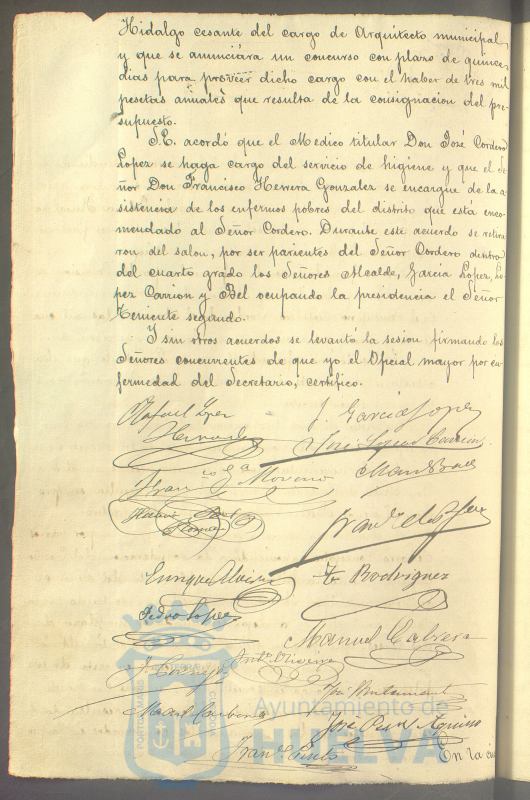 Hidalgo cesante del cargo de Arquitecto municipal,
y que se anunciara un concurso con plazo de quince
dias para proveer dicho cargo con el haber de tres mil
pesetas anuales que resulta de la consignacion del pre-
supuesto.
S.E. acordó que el Medico titular Don José Cordero
Lopez se haga cargo del servicio de higiene y que el Se-
ñor Don Francisco Herrera Gonzalez se encargue de la a-
sistencia de los enfermos pobres del distrito que está enco-
mendado al Señor Cordero. Durante este acuerdo se retira-
ron del salon, por ser parientes del Señor Cordero dentro
del cuarto grado los Señores Alcalde, Garcia Lopez, Lo-
pez Carrion y Bel ocupando la presidencia el Señor
Teniente segundo.
Y sin otros acuerdos se levantó la sesion firmando los
Señores concurrentes de que yo el Oficial mayor por en-
fermedad del Secretario, certifico.
Rafael Lopez
Hernandez
J. Garcia Lopez
José Lopez Carrion
Franco Moreno
Enrique
F. Rodriguez
Pedro Lopez
Manuel Cabrera
J. Cornejo
Anto Oliveira
José
Ayuntamiento de
HUELVA
En la